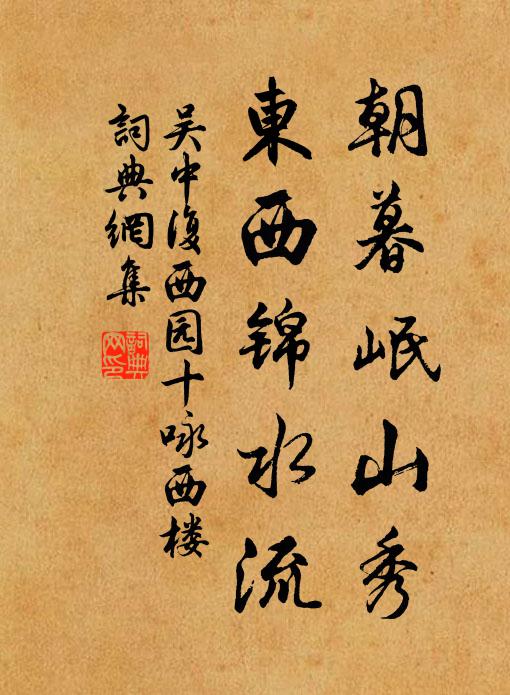 朝暮岷山秀
東西锦水流
吴中復西园十咏西楼
詞典網集
詞典
网印